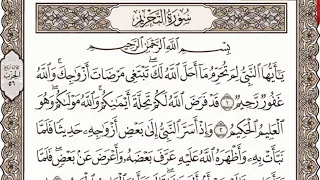 سُورَةُ التَّحْرِيمِ
بِسْمِ ٱللَّهِ ٱلرَّحْمَٰنِ ٱلرَّحِيمِ
يَٰٓأَيُّهَا ٱلنَّبِيُّ لِمَ تُحَرِّمُ مَآ أَحَلَّ ٱللَّهُ لَكَۖ تَبْتَغِي مَرْضَاتَ أَزْوَٰجِكَۚ وَٱللَّهُ
غَفُورٌ رَّحِيمٌ ١ قَدْ فَرَضَ ٱللَّهُ لَكُمْ تَحِلَّةَ أَيْمَٰنِكُمْۚ وَٱللَّهُ مَوْلَىٰكُمْۖ وَهُوَ
ٱلْعَلِيمُ ٱلْحَكِيمُ ٢ وَإِذْ أَسَرَّ ٱلنَّبِيُّ إِلَىٰ بَعْضِ أَزْوَٰجِهِۦ حَدِيثًا فَلَمَّا
نَبَّأَتْ بِهِۦ وَأَظْهَرَهُ ٱللَّهُ عَلَيْهِ عَرَّفَ بَعْضَهُۥ وَأَعْرَضَ عَنۢ بَعْضٍۖ فَلَمَّا
الحزب
٥٦